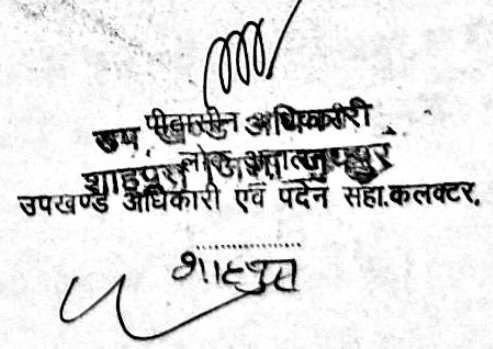 उप पीठासीन अधिकारी
शाहपुरा लोक अदालत जयपुर
उपखण्ड अधिकारी एवं पदेन सहा.कलक्टर,
शाहपुरा